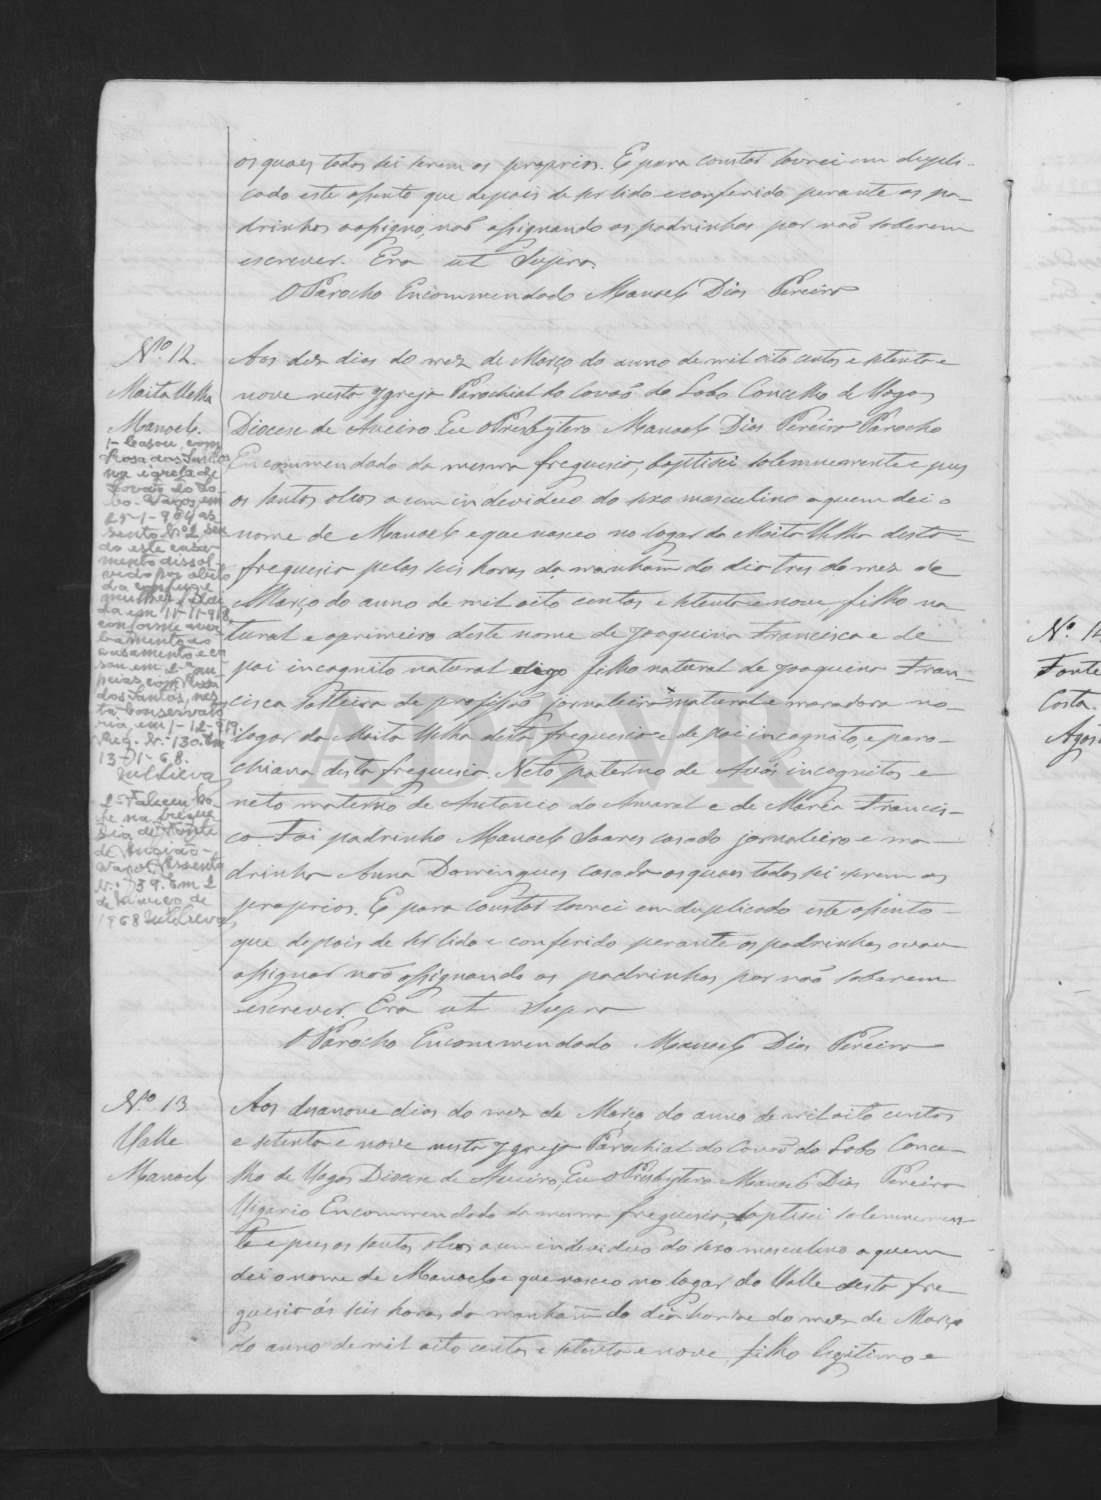 os quaes todos sei serem os proprios. E para constar lavrei em dupli-
cado este assento que depois de ser lido e conferido perante os pa-
drinhos o assigno, não assignando os padrinhos por não saberem
escrever. Era ut Supra.
O Parocho Encommendado Manoel Dias Pereira
Nº 12.
Moita Velha
Manoel.
Aos dez dias do mez de Março do anno de mil oito centos e setenta e
nove nesta Igreja Parochial do Covão do Lobo Concelho de Vagos
Diocese de Aveiro Eu o Presbytero Manoel Dias Pereira Parocho
Encommendado da mesma freguesia, baptisei solemnemente e pus
os santos oleos a um individuo do sexo masculino a quem dei o
nome de Manoel e que nasceo no logar da Moita Velha desta
freguesia pelas seis horas da manham do dia tres do mez de
Março do anno de mil oito centos e setenta e nove, filho na
tural e o primeiro deste nome de Joaquina Francisca e de
pai incognito natural digo filho natural de Joaquina Fran-
cisca solteira de profissão jornaleira natural e moradora no
logar da Moita Velha desta freguesia e de pai incognito, e paro-
chiana desta freguesia. Neto paterno de Avós incognitos e
neto materno de Antonio do Amaral e de Maria Francis-
ca. Foi padrinho Manoel Soares casado jornaleiro e ma-
drinha Anna Domingues casada os quaes todos sei serem os
proprios. E para constar lavrei em duplicado este assento
que depois de ser lido e conferido perante os padrinhos
assignar não assignando os padrinhos por não saberem
escrever. Era ut Supra
O Parocho Encommendado Manoel Dias Pereira
1- Casou com
Rosa dos Santos
na igreja de
Covão do Lo-
bo - Vagos, em
25-1-904 as
sento Nº 2, sen
do este casa-
mento dissol-
vido por obito
da
mulher,
da em 11-11-918,
conforme aver
bamento ao
casamento e ca
sou em 2as nu
pcias, com Rosa
dos Santos, nes
ta Conservato
ria, em 1-12-919.
Reg. Nº 130. Em
13-1-68.
2- Faleceu ho-
je na fregue
sia de Fonte
de Angião -
Vagos. Assento
nº 39. Em 2
de Janeiro de
1968
Nº 13
Valle
Manoel
Aos desanove dias do mez de Março do anno de mil oito centos
e setenta e nove nesta Igreja Parochial do Covão do Lobo Conce-
lho de Vagos Diocese de Aveiro, Eu o Presbytero Manoel Dias Pereira
Vigario Encommendado da mesma freguesia, baptisei solemnemen-
te e pus os santos oleos a um individuo do sexo masculino a quem
dei o nome de Manoel e que nasceo no logar do Valle desta fre
guesia ás seis horas da manham do dia honze do mez de Março
do anno de mil oito centos e setenta e nove, filho legitimo e
Nº 14
Fonte
Costa.
ADAVR